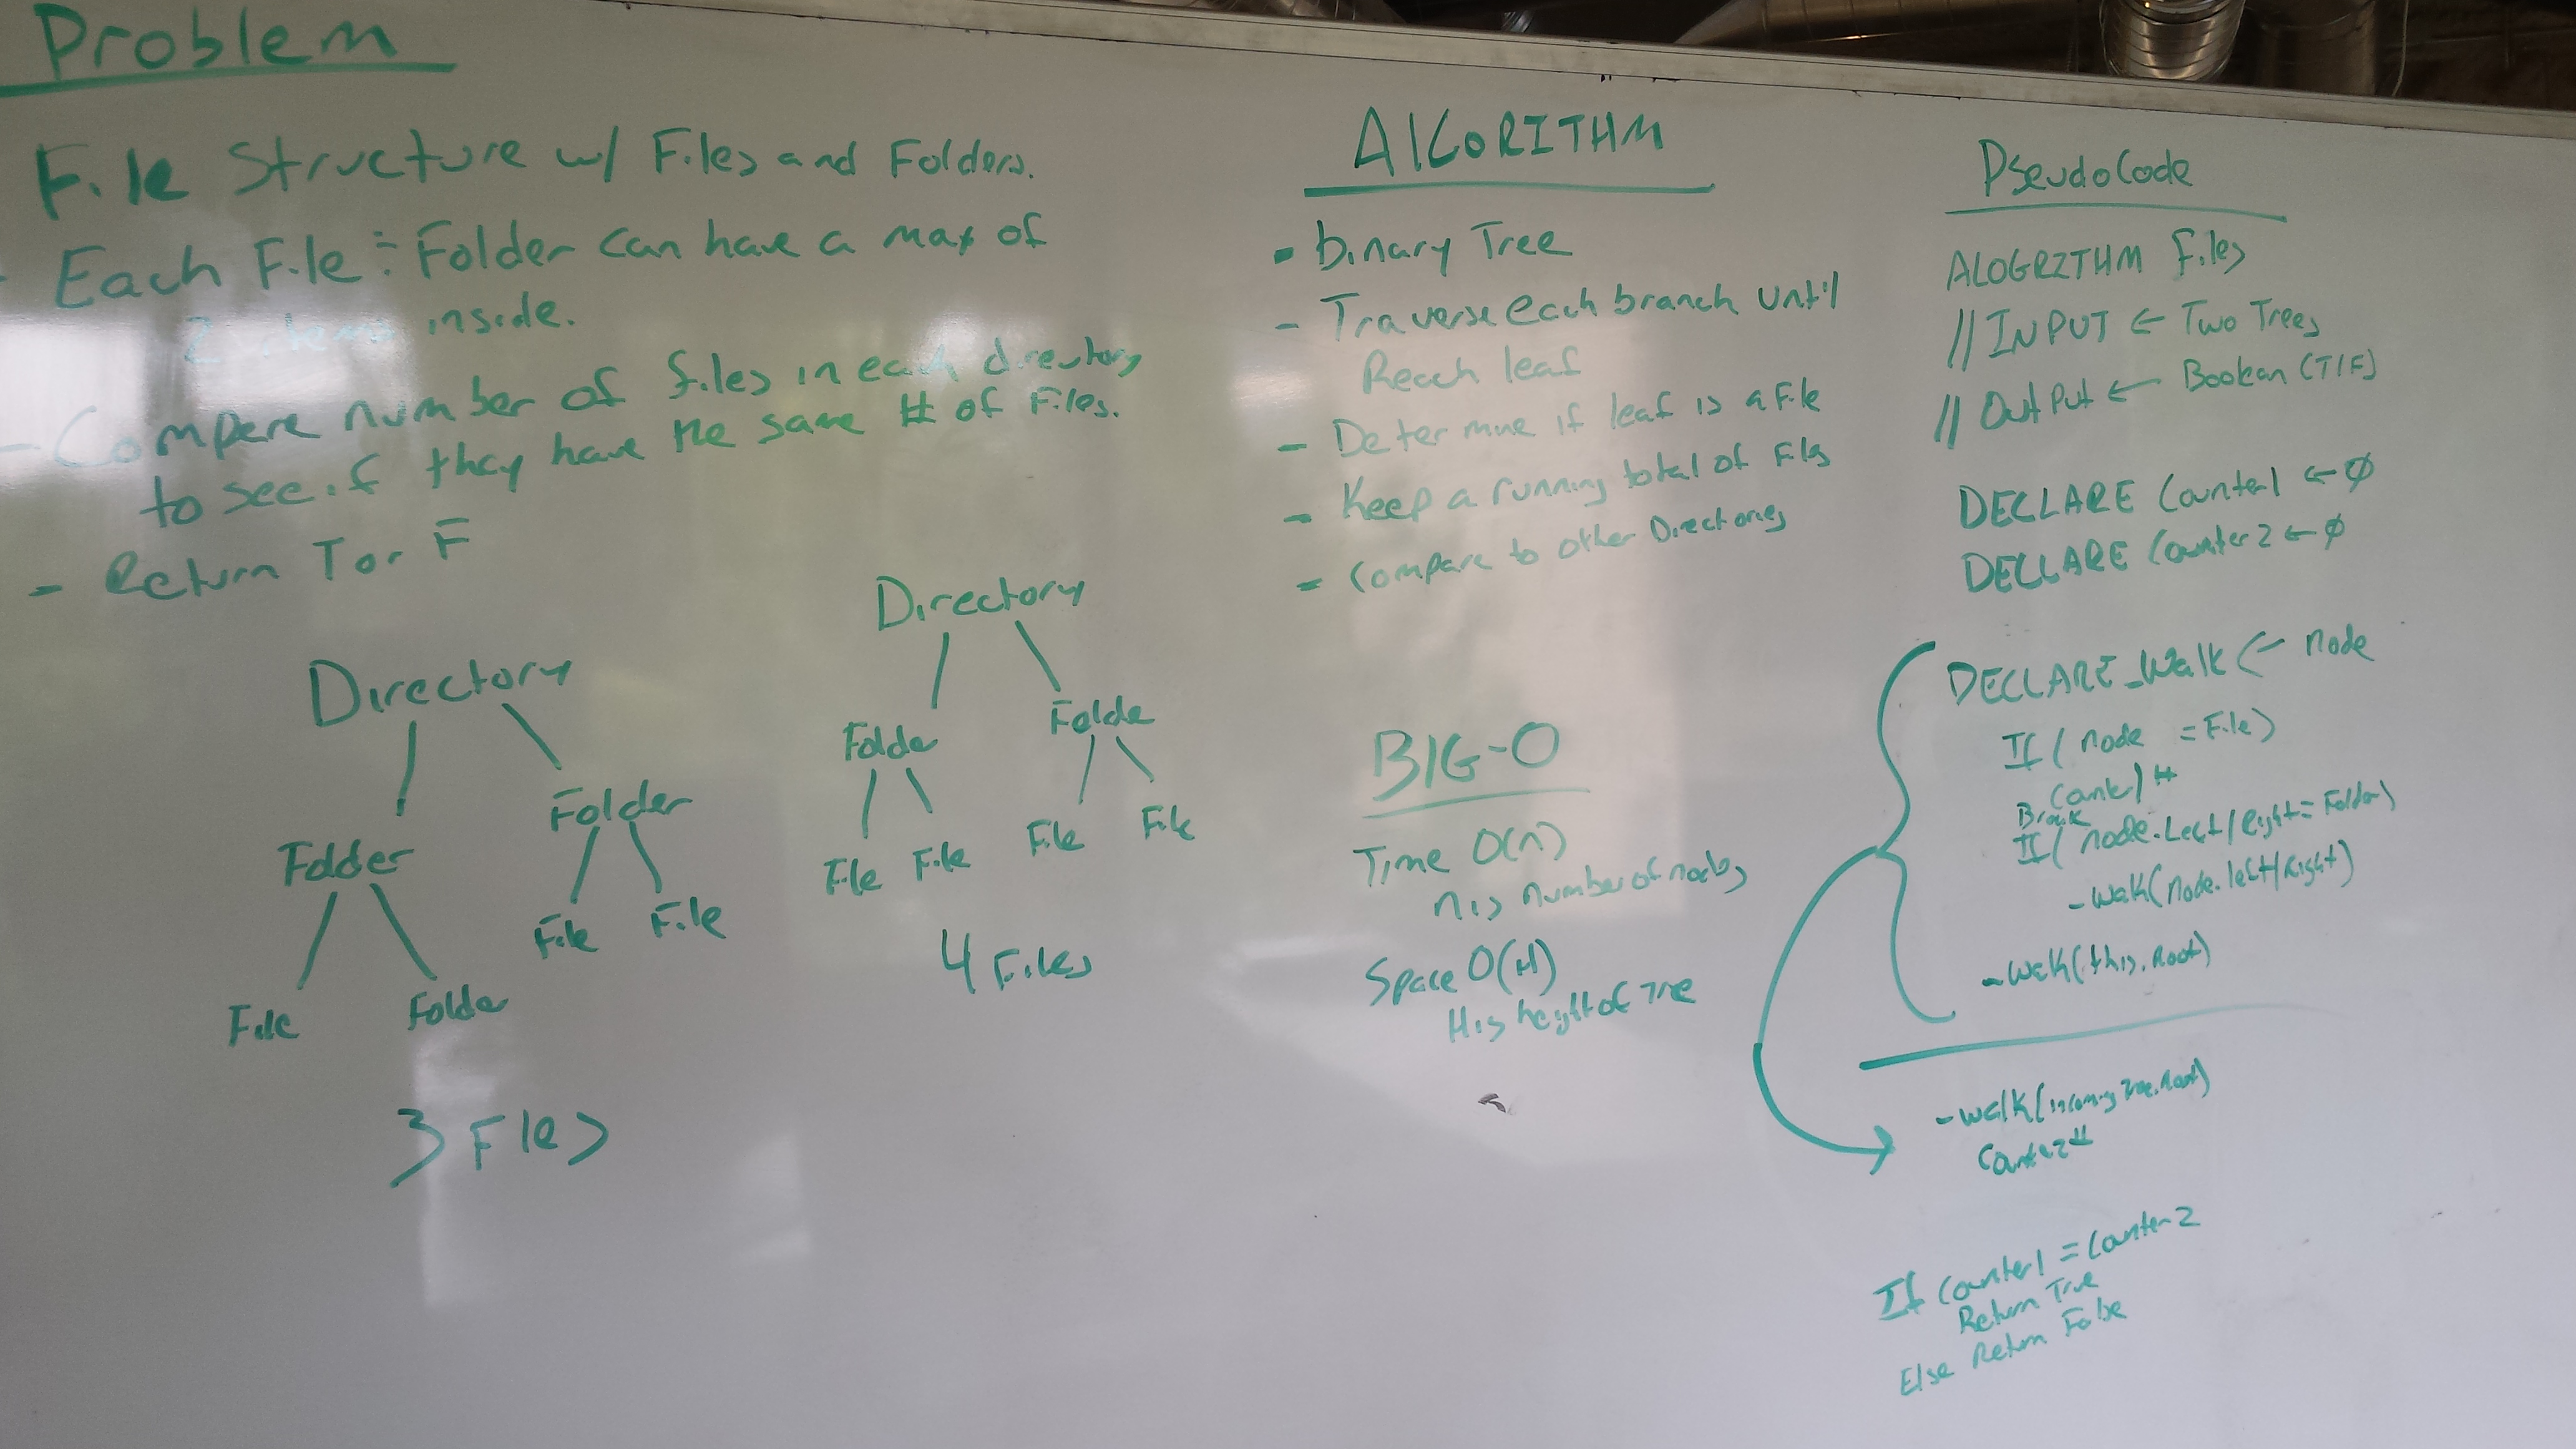 Problem
File Structure w/ Files and Folders.
- Each File ÷ Folder can have a max of
2 items inside.
- Compare number of files in each directory
to see if they have the same # of Files.
- Return T or F
Directory
Folder Folder
File Folder File File
3 Files
Directory
Folde Folde
File File File File
4 Files
AlGORITHM
- binary Tree
- Traverse each branch until
Reach leaf
- Determine if leaf is a File
- Keep a running total of Files
- Compare to other Directories
BIG-O
Time O(n)
n is number of nodes
Space O(H)
H is height of Tree
PseudoCode
ALOGRITHM Files
// INPUT ← Two Trees
// OutPut ← Boolean (T/F)
DECLARE Counter1 ← Ø
DECLARE Counter2 ← Ø
DECLARE _Walk ← Node
If ( node = File)
Break
If ( node.Left/Right = Folder)
-walk(node.left/right)
-walk(this.Root)
-walk(incoming Tree.Root)
Counter2++
If Counter1 = Counter2
Return True
Else Return False